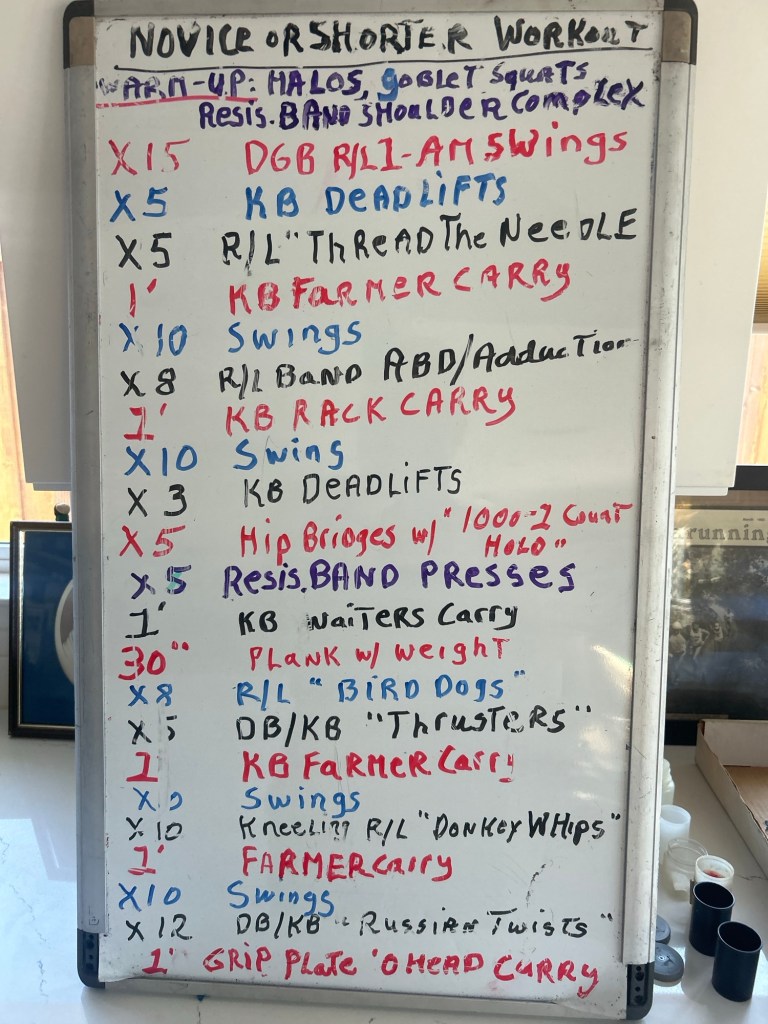 NOVICE OR SHORTER WORKOUT
WARM-UP: HALOS, goBLET SQuATS
RESIS. BAND SHOULDER COMPLEX
X15 DGB R/L 1-AM SWings
X5 KB DEADLIFTS
X5 R/L "ThREAD The NeeDLE
1' KB FARMER CARRY
X10 Swings
X8 R/L BAND ABD/Adduction
1' KB RACK CARRY
X10 Swing
X3 KB DEADLIFTS
X5 Hip Bridges w/ "1000-1 Count
HOLD"
X5 Resis. BAND PRESSES
1' KB WAITERS Carry
30" PLANK w/ weight
X8 R/L "BIRD DOGS"
X5 DB/KB "ThrusTERS"
1 KB FARMER Carry
Swings
X10 Kneeling R/L "DONKEY WHIPS"
1' FARMER Carry
X10 Swings
X12 DB/KB "RUSSIAN TWISTS"
1' GRIP PLATE 'O HEAD CURRY
running